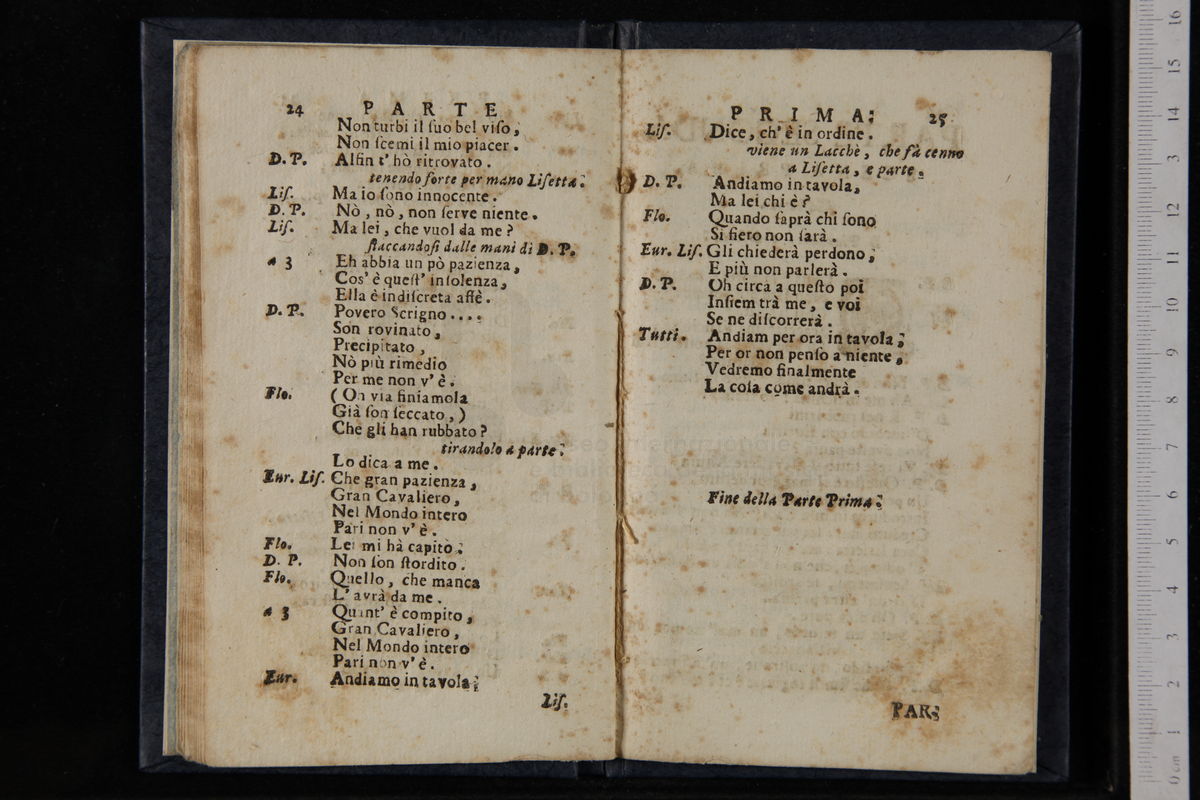 24 PARTE
Non turbi il ſuo bel viſo,
Non ſcemi il mio piacer.
D. P. Alfin t' hò ritrovato.
tenendo forte per mano Liſetta.
Liſ. Ma io ſono innocente.
D. P. Nò, nò, non ſerve niente.
Liſ. Ma lei, che vuol da me?
ſtaccandoſi dalle mani di D. P.
a 3 Eh abbia un pò pazienza,
Cos' è queſt' inſolenza,
Ella è indiſcreta affè.
D. P. Povero Scrigno....
Son rovinato,
Precipitato,
Nò più rimedio
Per me non v' è.
Flo. (Oh via finiamola
Già ſon ſeccato,)
Che gli han rubbato?
tirandolo a parte.
Lo dica a me.
Eur. Liſ. Che gran pazienza,
Gran Cavaliero,
Nel Mondo intero
Pari non v' è.
Flo. Lei mi hà capito.
D. P. Non ſon ſtordito.
Flo. Quello, che manca
L' avrà da me.
a 3 Quant' è compito,
Gran Cavaliero,
Nel Mondo intero
Pari non v' è.
Eur. Andiamo in tavola.
Liſ.
PRIMA. 25
Liſ. Dice, ch' è in ordine.
viene un Lacchè, che fà cenno
a Liſetta, e parte.
D. P. Andiamo in tavola,
Ma lei chi è?
Flo. Quando ſaprà chi ſono
Sì fiero non ſarà.
Eur. Liſ. Gli chiederà perdono,
E più non parlerà.
D. P. Oh circa a queſto poi
Inſiem trà me, e voi
Se ne diſcorrerà.
Tutti. Andiam per ora in tavola,
Per or non penſo a niente,
Vedremo finalmente
La coſa come andrà.
Fine della Parte Prima.
PAR.
0 cm 1 2 3 4 5 6 7 8 9 10 11 12 13 14 15 16